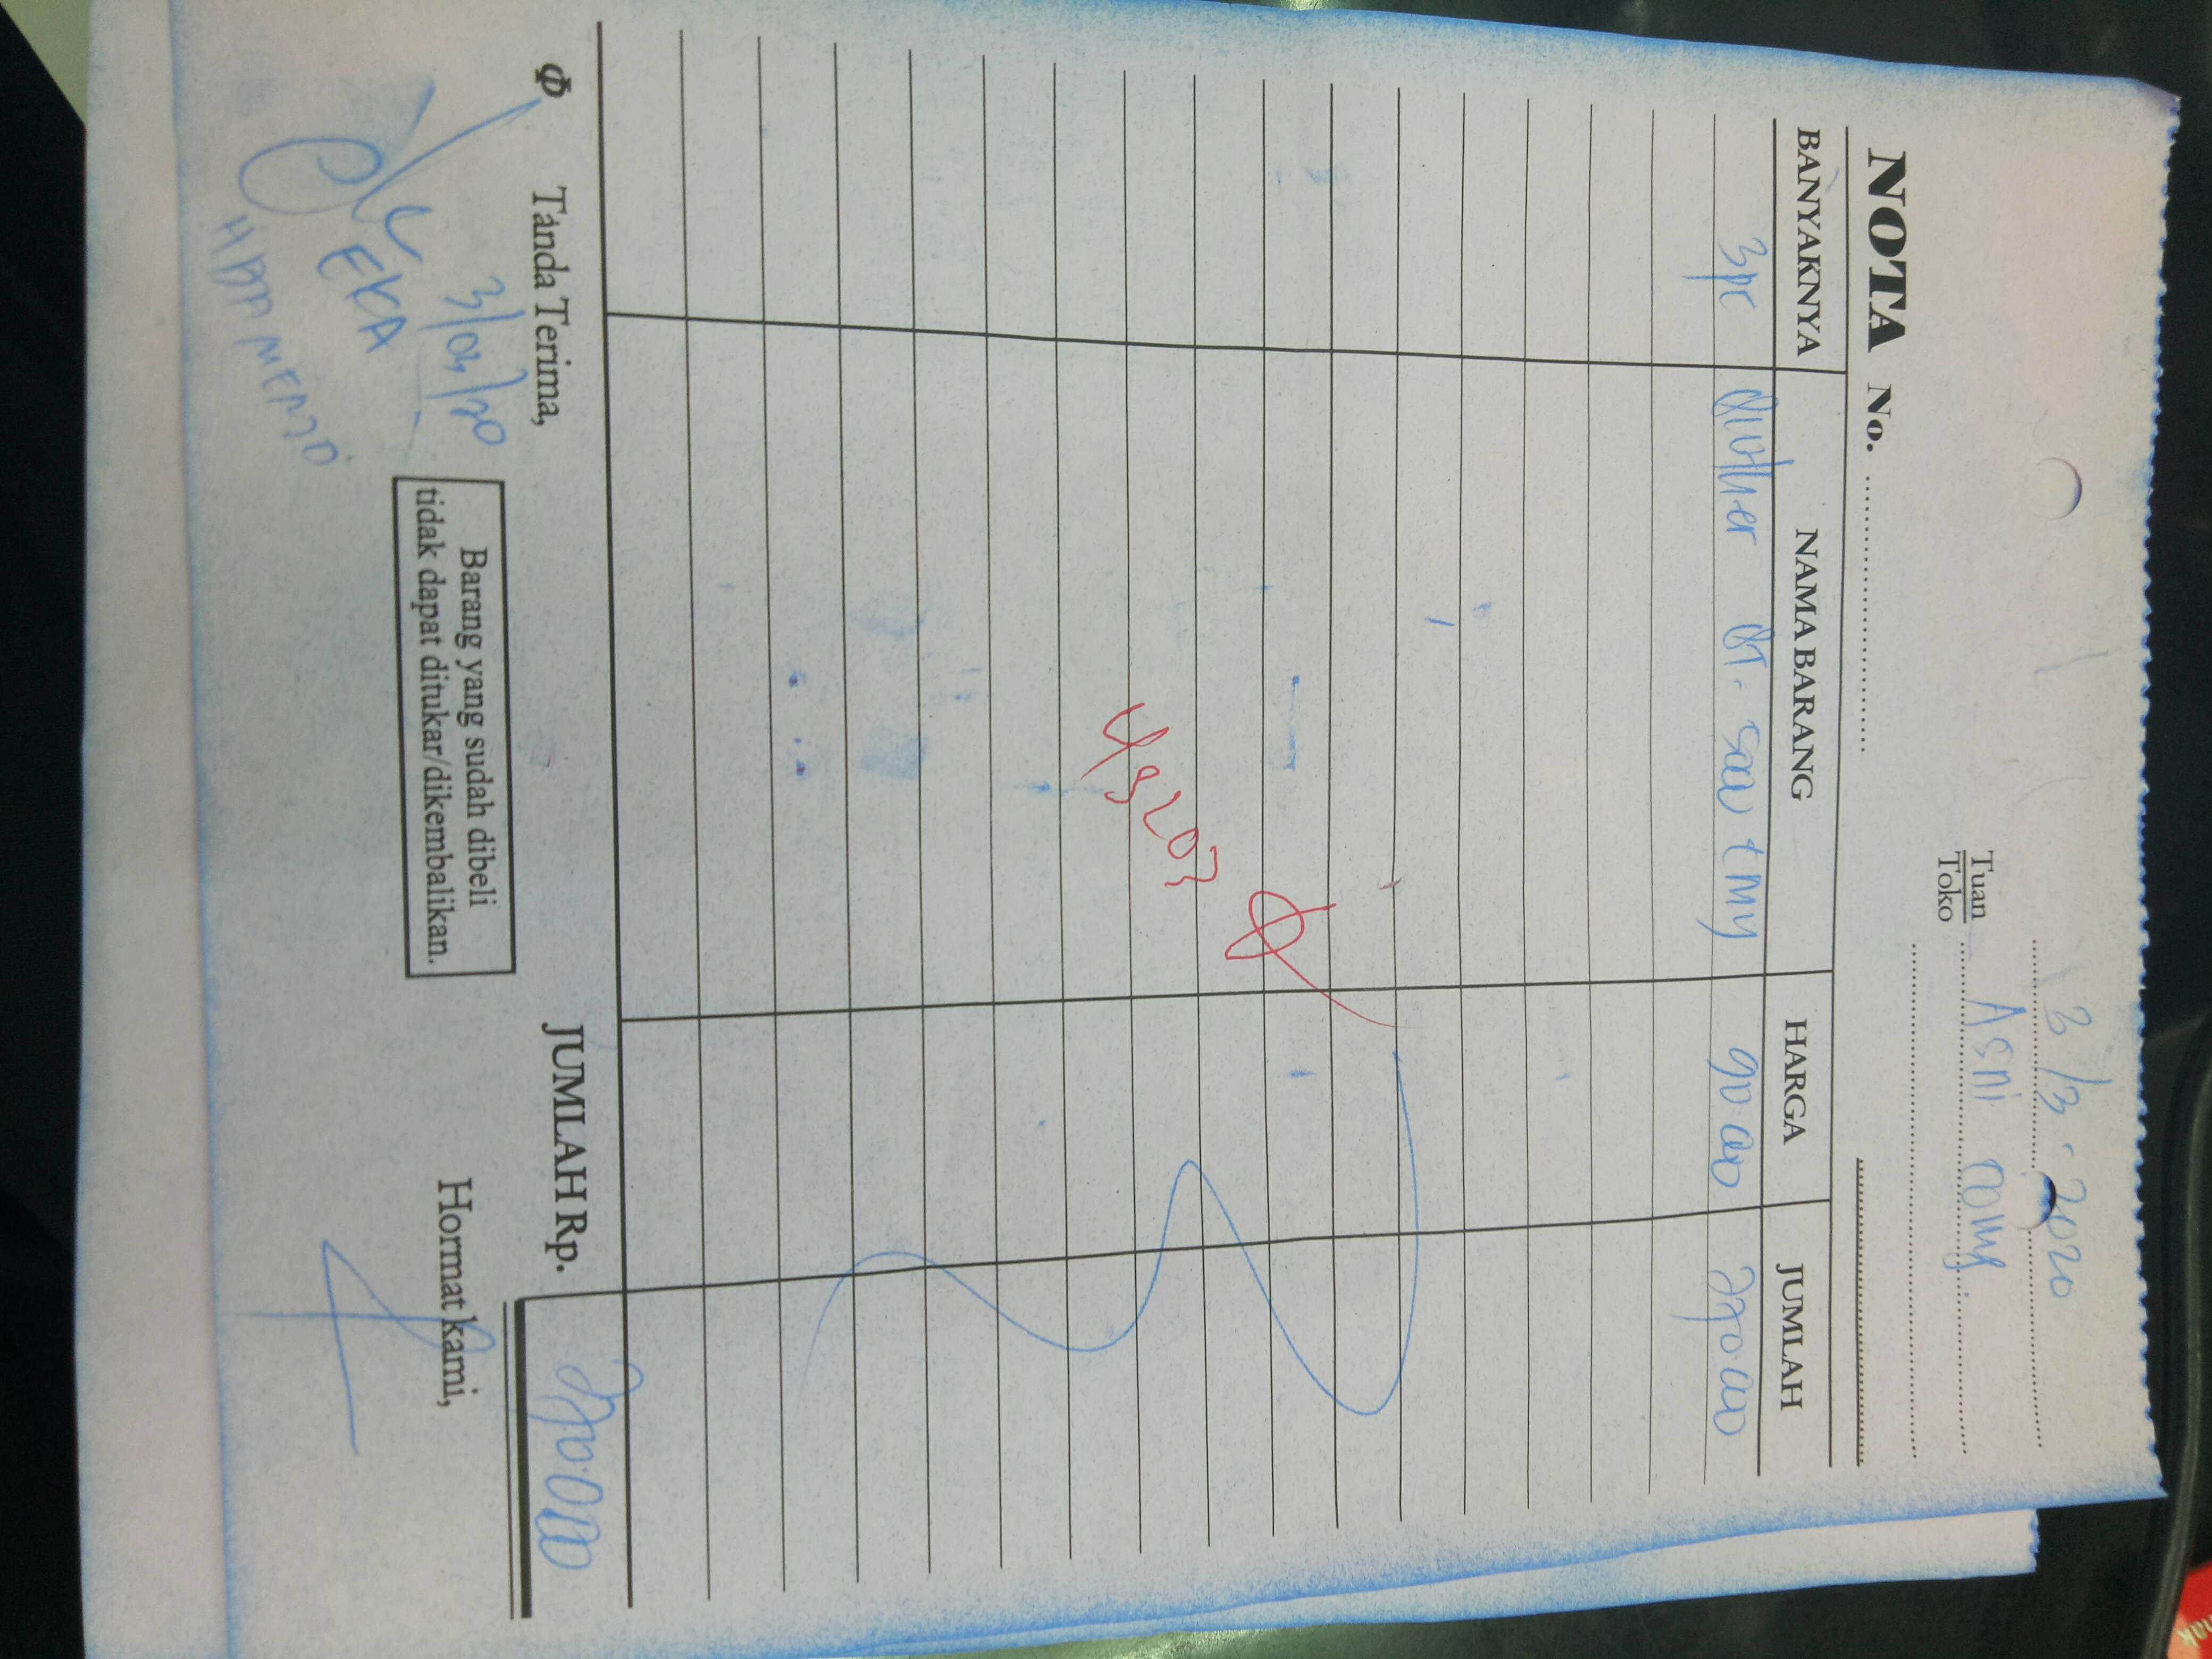 3/3-2020
Tuan
Toko
Asni
NOTA No.
BANYAKNYA NAMA BARANG HARGA JUMLAH
3pc Brother BT. 90.000 270.000
43203
JUMLAH Rp. 270.000
Tanda Terima,
Hormat kami,
3/03/20
EKA
Barang yang sudah dibeli
tidak dapat ditukar/dikembalikan.